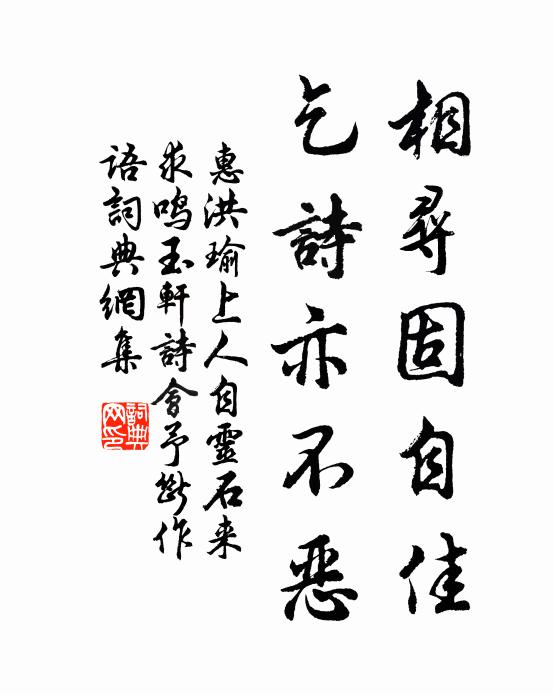 相尋固自佳
乞詩亦不惡
惠洪瑜上人自靈石来
求鳴玉軒詩會予斷作
語詞典網集
詞典
网印